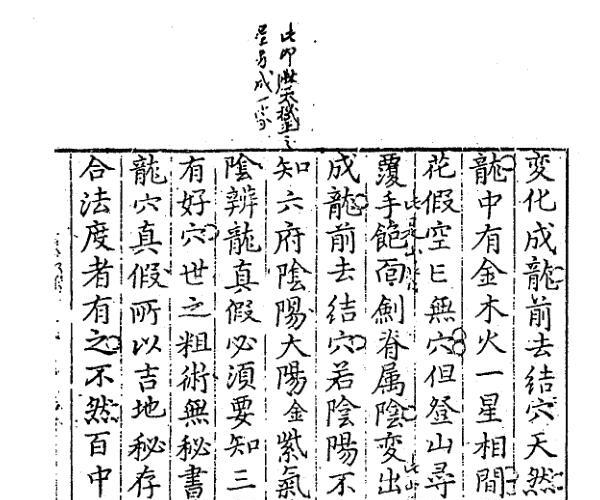 此卽
星另成一家
變化成龍前去結穴天然
龍中有金木火一星相間
花假空亡無穴但登山尋
覆手飽面劍脊属陰變出
成龍前去結穴若陰陽不
知六府陰陽大陽金紫氣
陰辨龍真假必須要知三
有好穴世之粗術無秘書
龍穴真假所以吉地秘存
合法度者有之不然百中